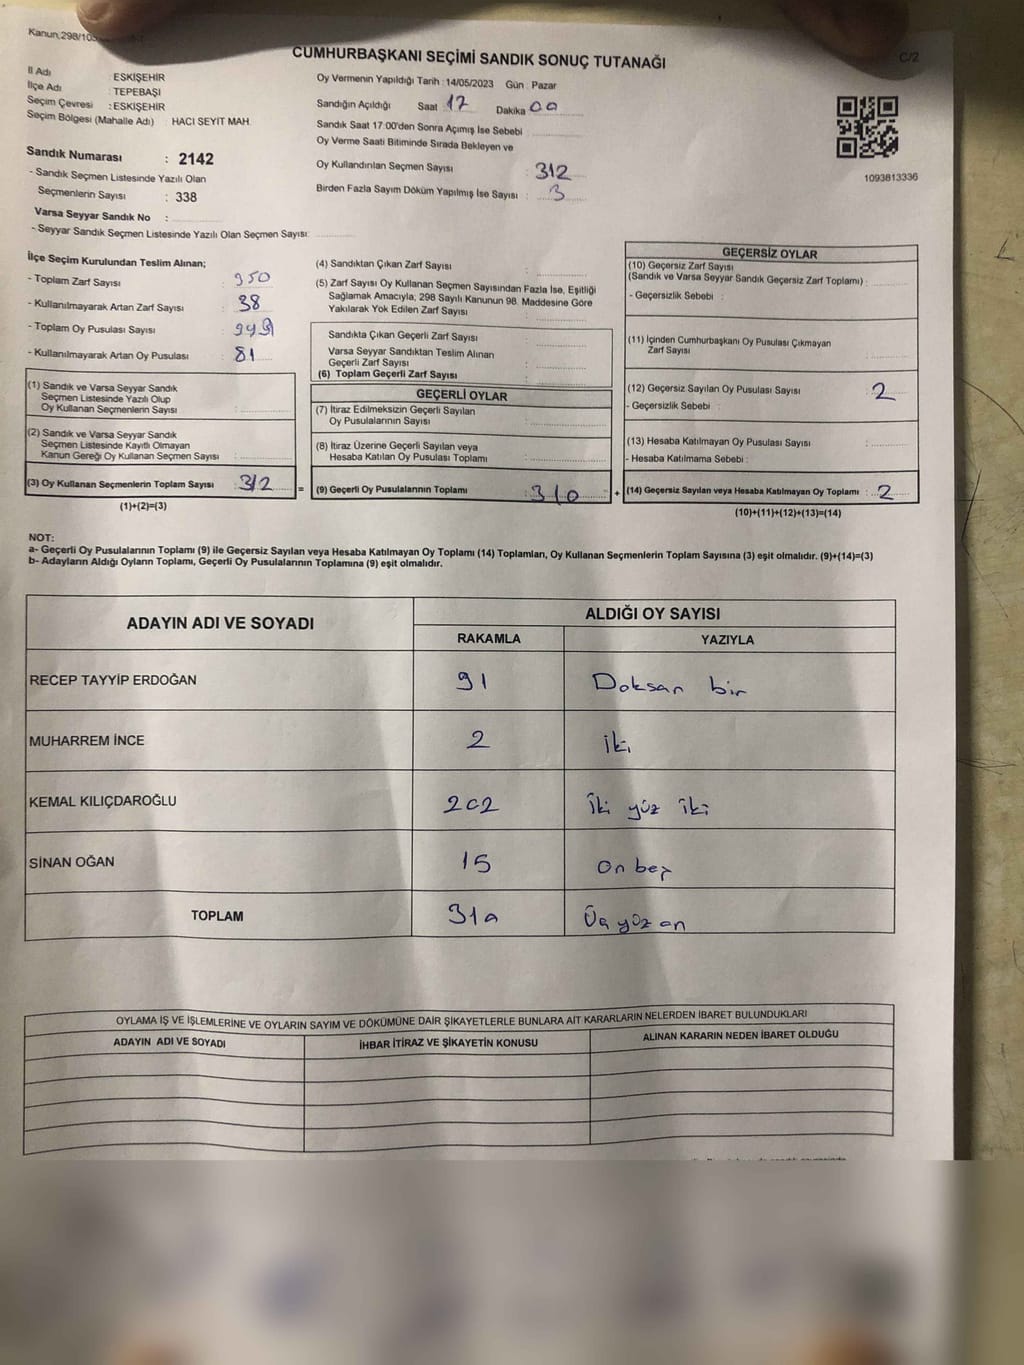 Kanun,298/105
CUMHURBAŞKANI SEÇİMİ SANDIK SONUÇ TUTANAĞI
C/2
İl Adı : ESKİŞEHİR
İlçe Adı : TEPEBAŞI
Seçim Çevresi : ESKİŞEHİR
Seçim Bölgesi (Mahalle Adı) : HACI SEYİT MAH.
Sandık Numarası : 2142
- Sandık Seçmen Listesinde Yazılı Olan
Seçmenlerin Sayısı : 338
Varsa Seyyar Sandık No :
- Seyyar Sandık Seçmen Listesinde Yazılı Olan Seçmen Sayısı:
Oy Vermenin Yapıldığı Tarih : 14/05/2023 Gün : Pazar
Sandığın Açıldığı Saat : 17 Dakika : 00
Sandık Saat 17:00'den Sonra Açımış İse Sebebi :
Oy Verme Saati Bitiminde Sırada Bekleyen ve
Oy Kullandırılan Seçmen Sayısı : 312
Birden Fazla Sayım Döküm Yapılmış İse Sayısı : 3
1093813336
İlçe Seçim Kurulundan Teslim Alınan;
- Toplam Zarf Sayısı : 350
- Kullanılmayarak Artan Zarf Sayısı : 38
- Toplam Oy Pusulası Sayısı :
- Kullanılmayarak Artan Oy Pusulası : 81
(1) Sandık ve Varsa Seyyar Sandık
Seçmen Listesinde Yazılı Olup
Oy Kullanan Seçmenlerin Sayısı :
(2) Sandık ve Varsa Seyyar Sandık
Seçmen Listesinde Kayıtlı Olmayan
Kanun Gereği Oy Kullanan Seçmen Sayısı :
(3) Oy Kullanan Seçmenlerin Toplam Sayısı : 312
(1)+(2)=(3)
(4) Sandıktan Çıkan Zarf Sayısı :
(5) Zarf Sayısı Oy Kullanan Seçmen Sayısından Fazla İse, Eşitliği
Sağlamak Amacıyla; 298 Sayılı Kanunun 98. Maddesine Göre
Yakılarak Yok Edilen Zarf Sayısı :
Sandıkta Çıkan Geçerli Zarf Sayısı :
Varsa Seyyar Sandıktan Teslim Alınan
Geçerli Zarf Sayısı :
(6) Toplam Geçerli Zarf Sayısı :
GEÇERLİ OYLAR
(7) İtiraz Edilmeksizin Geçerli Sayılan
Oy Pusulalarının Sayısı :
(8) İtiraz Üzerine Geçerli Sayılan veya
Hesaba Katılan Oy Pusulası Toplamı :
= (9) Geçerli Oy Pusulalarının Toplamı : 310
GEÇERSİZ OYLAR
(10) Geçersiz Zarf Sayısı
(Sandık ve Varsa Seyyar Sandık Geçersiz Zarf Toplamı) :
- Geçersizlik Sebebi :
(11) İçinden Cumhurbaşkanı Oy Pusulası Çıkmayan
Zarf Sayısı :
(12) Geçersiz Sayılan Oy Pusulası Sayısı : 2
- Geçersizlik Sebebi :
(13) Hesaba Katılmayan Oy Pusulası Sayısı :
- Hesaba Katılmama Sebebi :
+ (14) Geçersiz Sayılan veya Hesaba Katılmayan Oy Toplamı : 2
(10)+(11)+(12)+(13)=(14)
NOT:
a- Geçerli Oy Pusulalarının Toplamı (9) ile Geçersiz Sayılan veya Hesaba Katılmayan Oy Toplamı (14) Toplamları, Oy Kullanan Seçmenlerin Toplam Sayısına (3) eşit olmalıdır. (9)+(14)=(3)
b- Adayların Aldığı Oyların Toplamı, Geçerli Oy Pusulalarının Toplamına (9) eşit olmalıdır.
ADAYIN ADI VE SOYADI
ALDIĞI OY SAYISI
RAKAMLA YAZIYLA
RECEP TAYYİP ERDOĞAN 91 Doksan bir
MUHARREM İNCE 2 iki
KEMAL KILIÇDAROĞLU 202 İki yüz iki
SİNAN OĞAN 15 On beş
TOPLAM 310 Üç yüz on
OYLAMA İŞ VE İŞLEMLERİNE VE OYLARIN SAYIM VE DÖKÜMÜNE DAİR ŞİKAYETLERLE BUNLARA AİT KARARLARIN NELERDEN İBARET BULUNDUKLARI
ADAYIN ADI VE SOYADI İHBAR İTİRAZ VE ŞİKAYETİN KONUSU ALINAN KARARIN NEDEN İBARET OLDUĞU